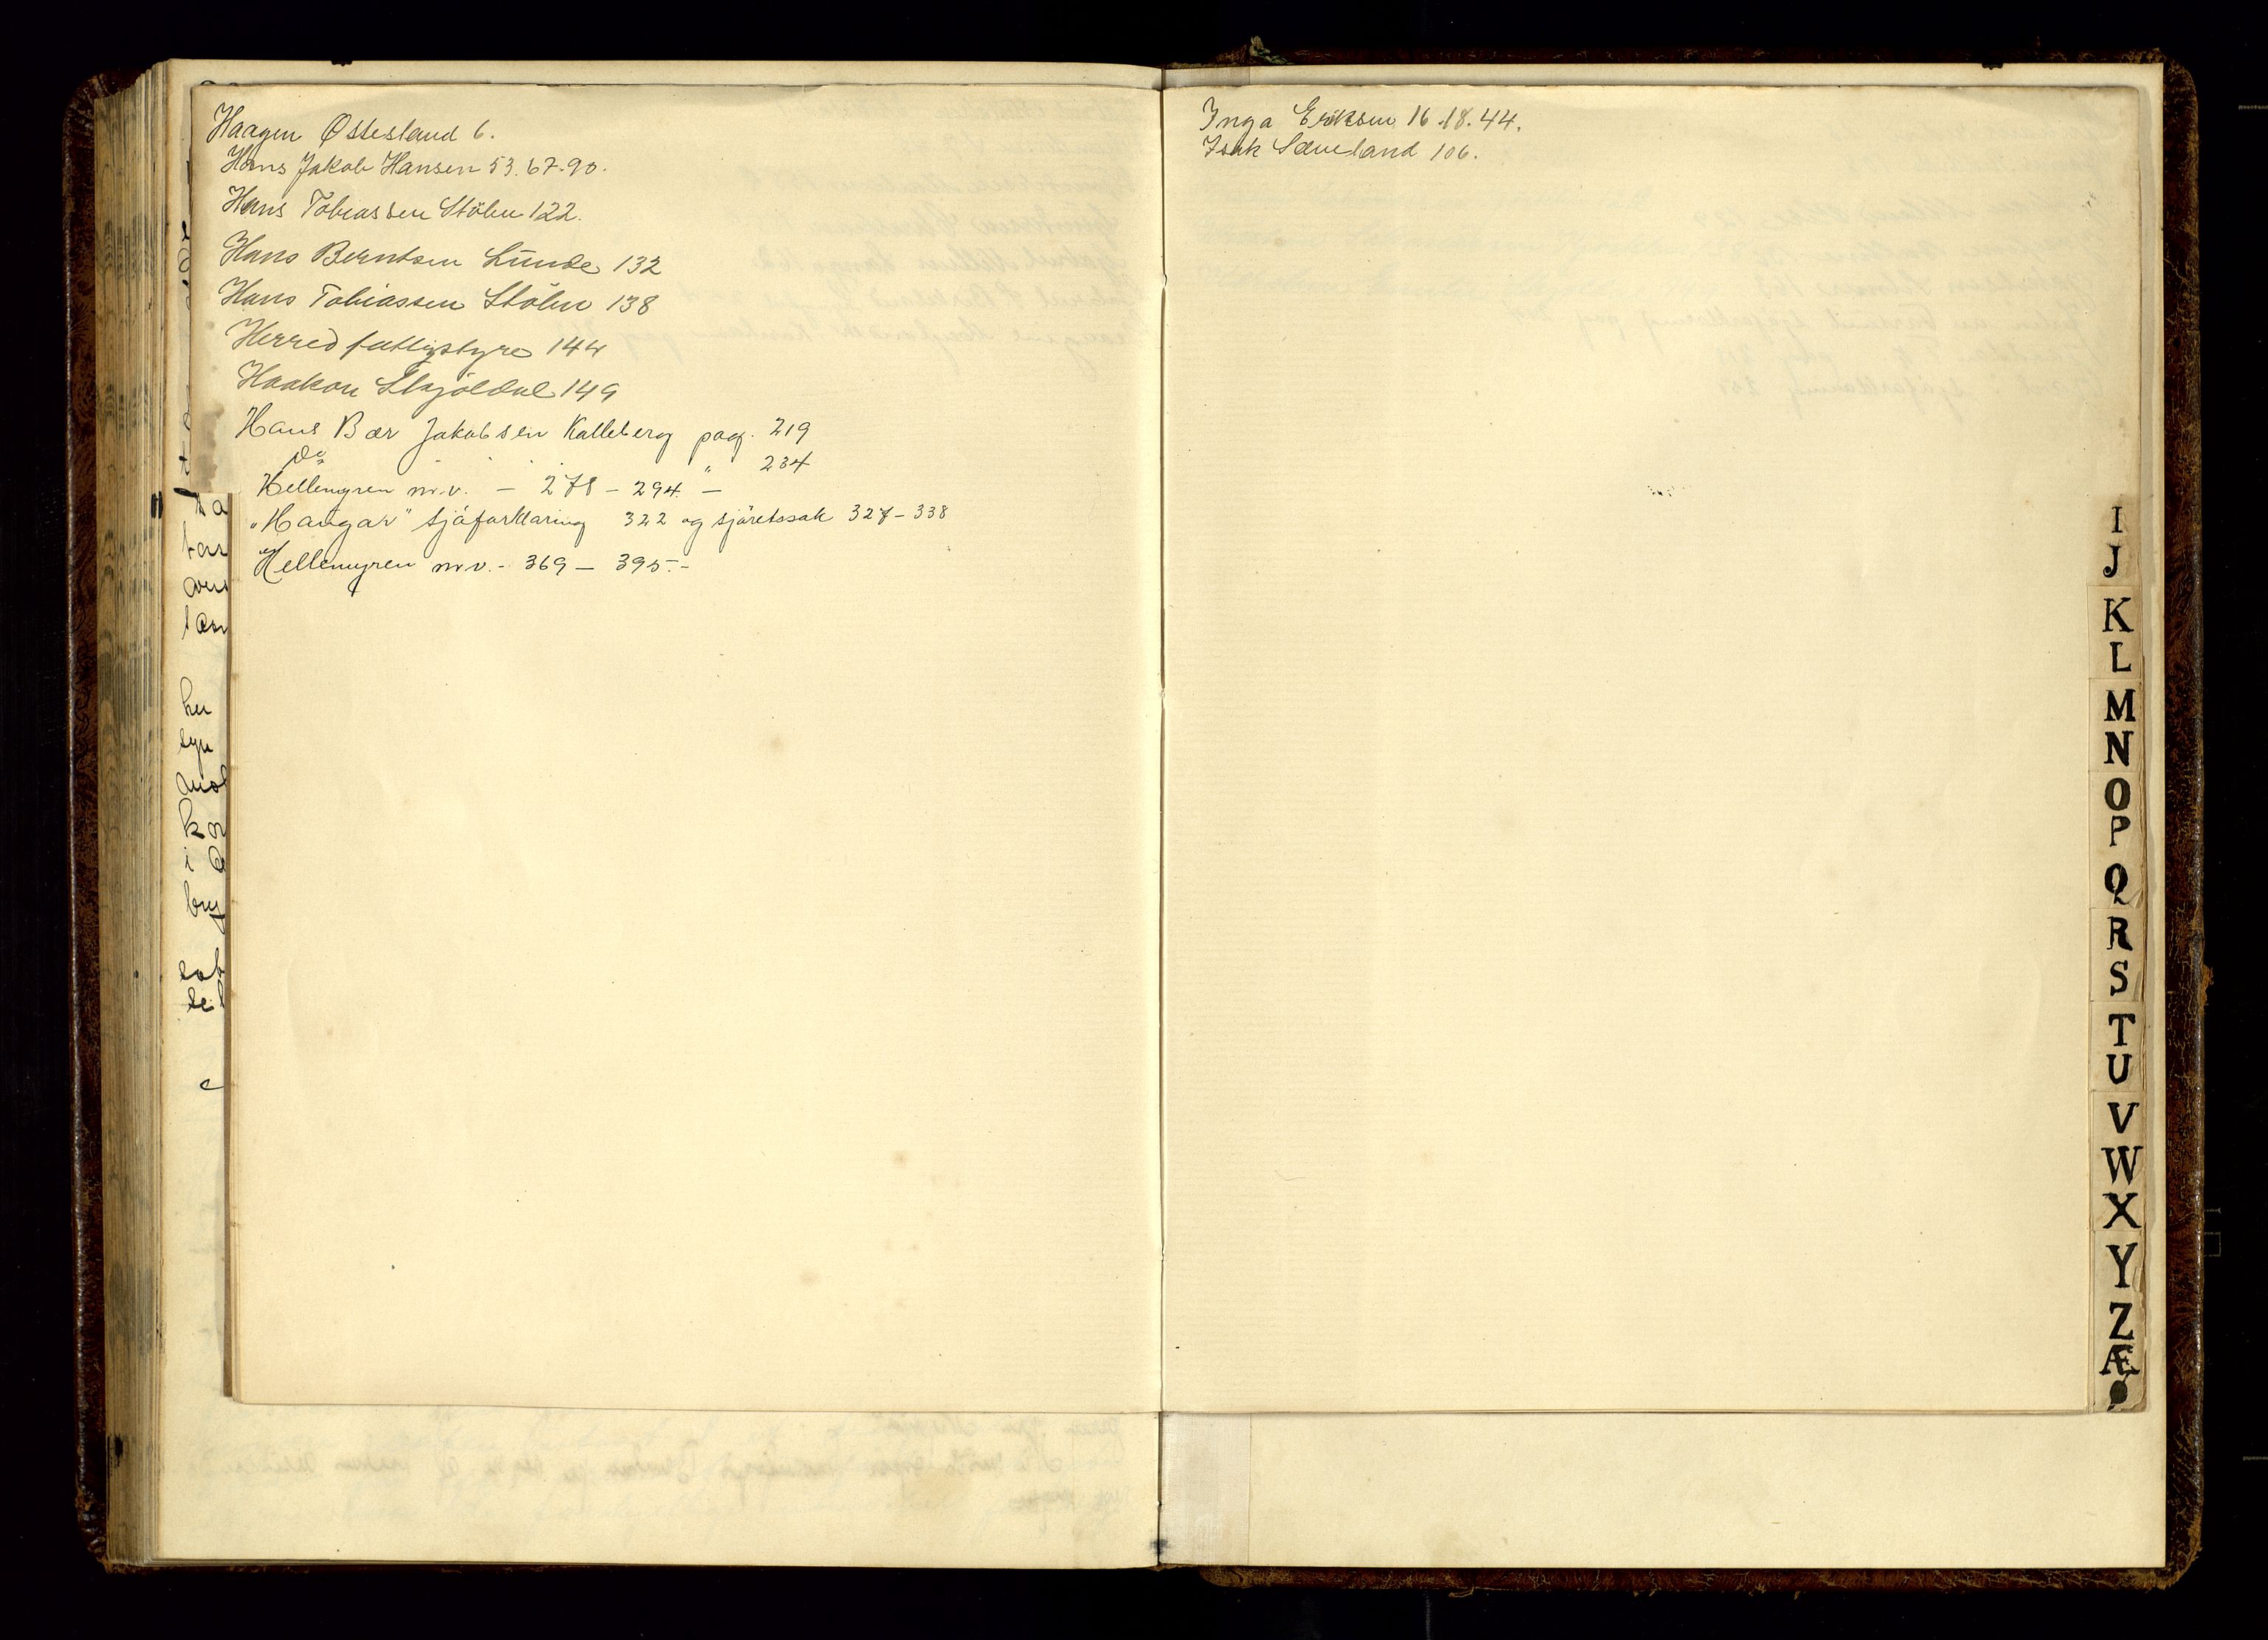 Haagen Øttesland 6.
Hans Jakob Hansen 53. 67. 90.
Hans Tobiassen Stölen 122.
Hans Berntsen Lunde 132
Hans Tobiassen Stölen 138
Herred fattigstyre 144
Haakon Skjöldal 149
Hans Bær Jakobsen Kalleberg pag. 219
Do " 234
Hellemyren m.v. - 278 - 294 -
"Haugar" sjöforklaring 322 og sjöretssak 327 - 338
Hellemyren m.v. - 369 - 395 -
Inga Eriksen 16. 18. 44.
Isak Sæveland 106.
I
J
K
L
M
N
O
P
Q
R
S
T
U
V
W
X
Y
Z
Æ